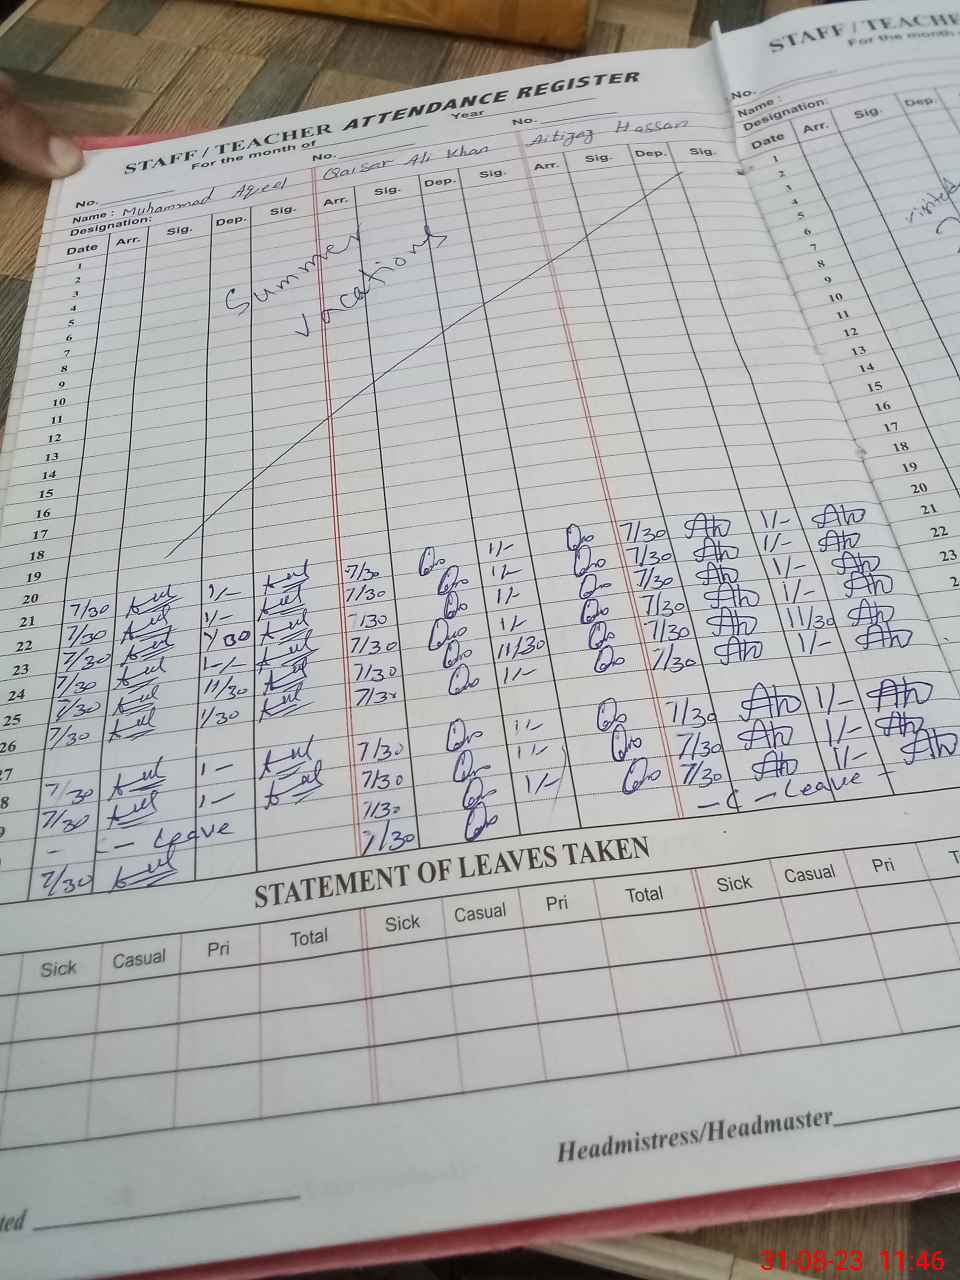 STAFF / TEACHER ATTENDANCE REGISTER
For the month of Year
No. No. No.
Name : Muhammad Aqeel Qaisar Ali Khan Aitizaz Hassan
Designation:
Date Arr. Sig. Dep. Sig. Arr. Sig. Dep. Sig. Arr. Sig. Dep. Sig.
1
2
3
4
5
6
7
8
9
10
11
12
13
14
15
16
17
18
19
Summer
vacations
20 7/30 1/- 7/30 1/- 7/30 1/-
21 7/30 1/- 7/30 1/- 7/30 1/-
22 7/30 1/30 7/30 1/- 7/30 1/-
23 7/30 1/- 7/30 1/- 7/30 1/-
24 7/30 11/30 7/30 11/30 7/30 11/30
25 7/30 1/30 7/30 1/- 7/30 1/-
26
27 7/30 1/- 7/30 1/- 7/30 1/-
8 7/30 1/- 7/30 1/- 7/30 1/-
- C - Leave 7/30 1/- 7/30 1/-
7/30 7/30 - C - Leave -
STATEMENT OF LEAVES TAKEN
Sick Casual Pri Total Sick Casual Pri Total Sick Casual Pri T
Headmistress/Headmaster
ted
STAFF / TEACHE
For the month
No.
Name :
Designation:
Date Arr. Sig. Dep.
1
2
3
4
5
6
7
8
9
10
11
12
13
14
15
16
17
18
19
20
21
22
23
visited
31-08-23 11:46